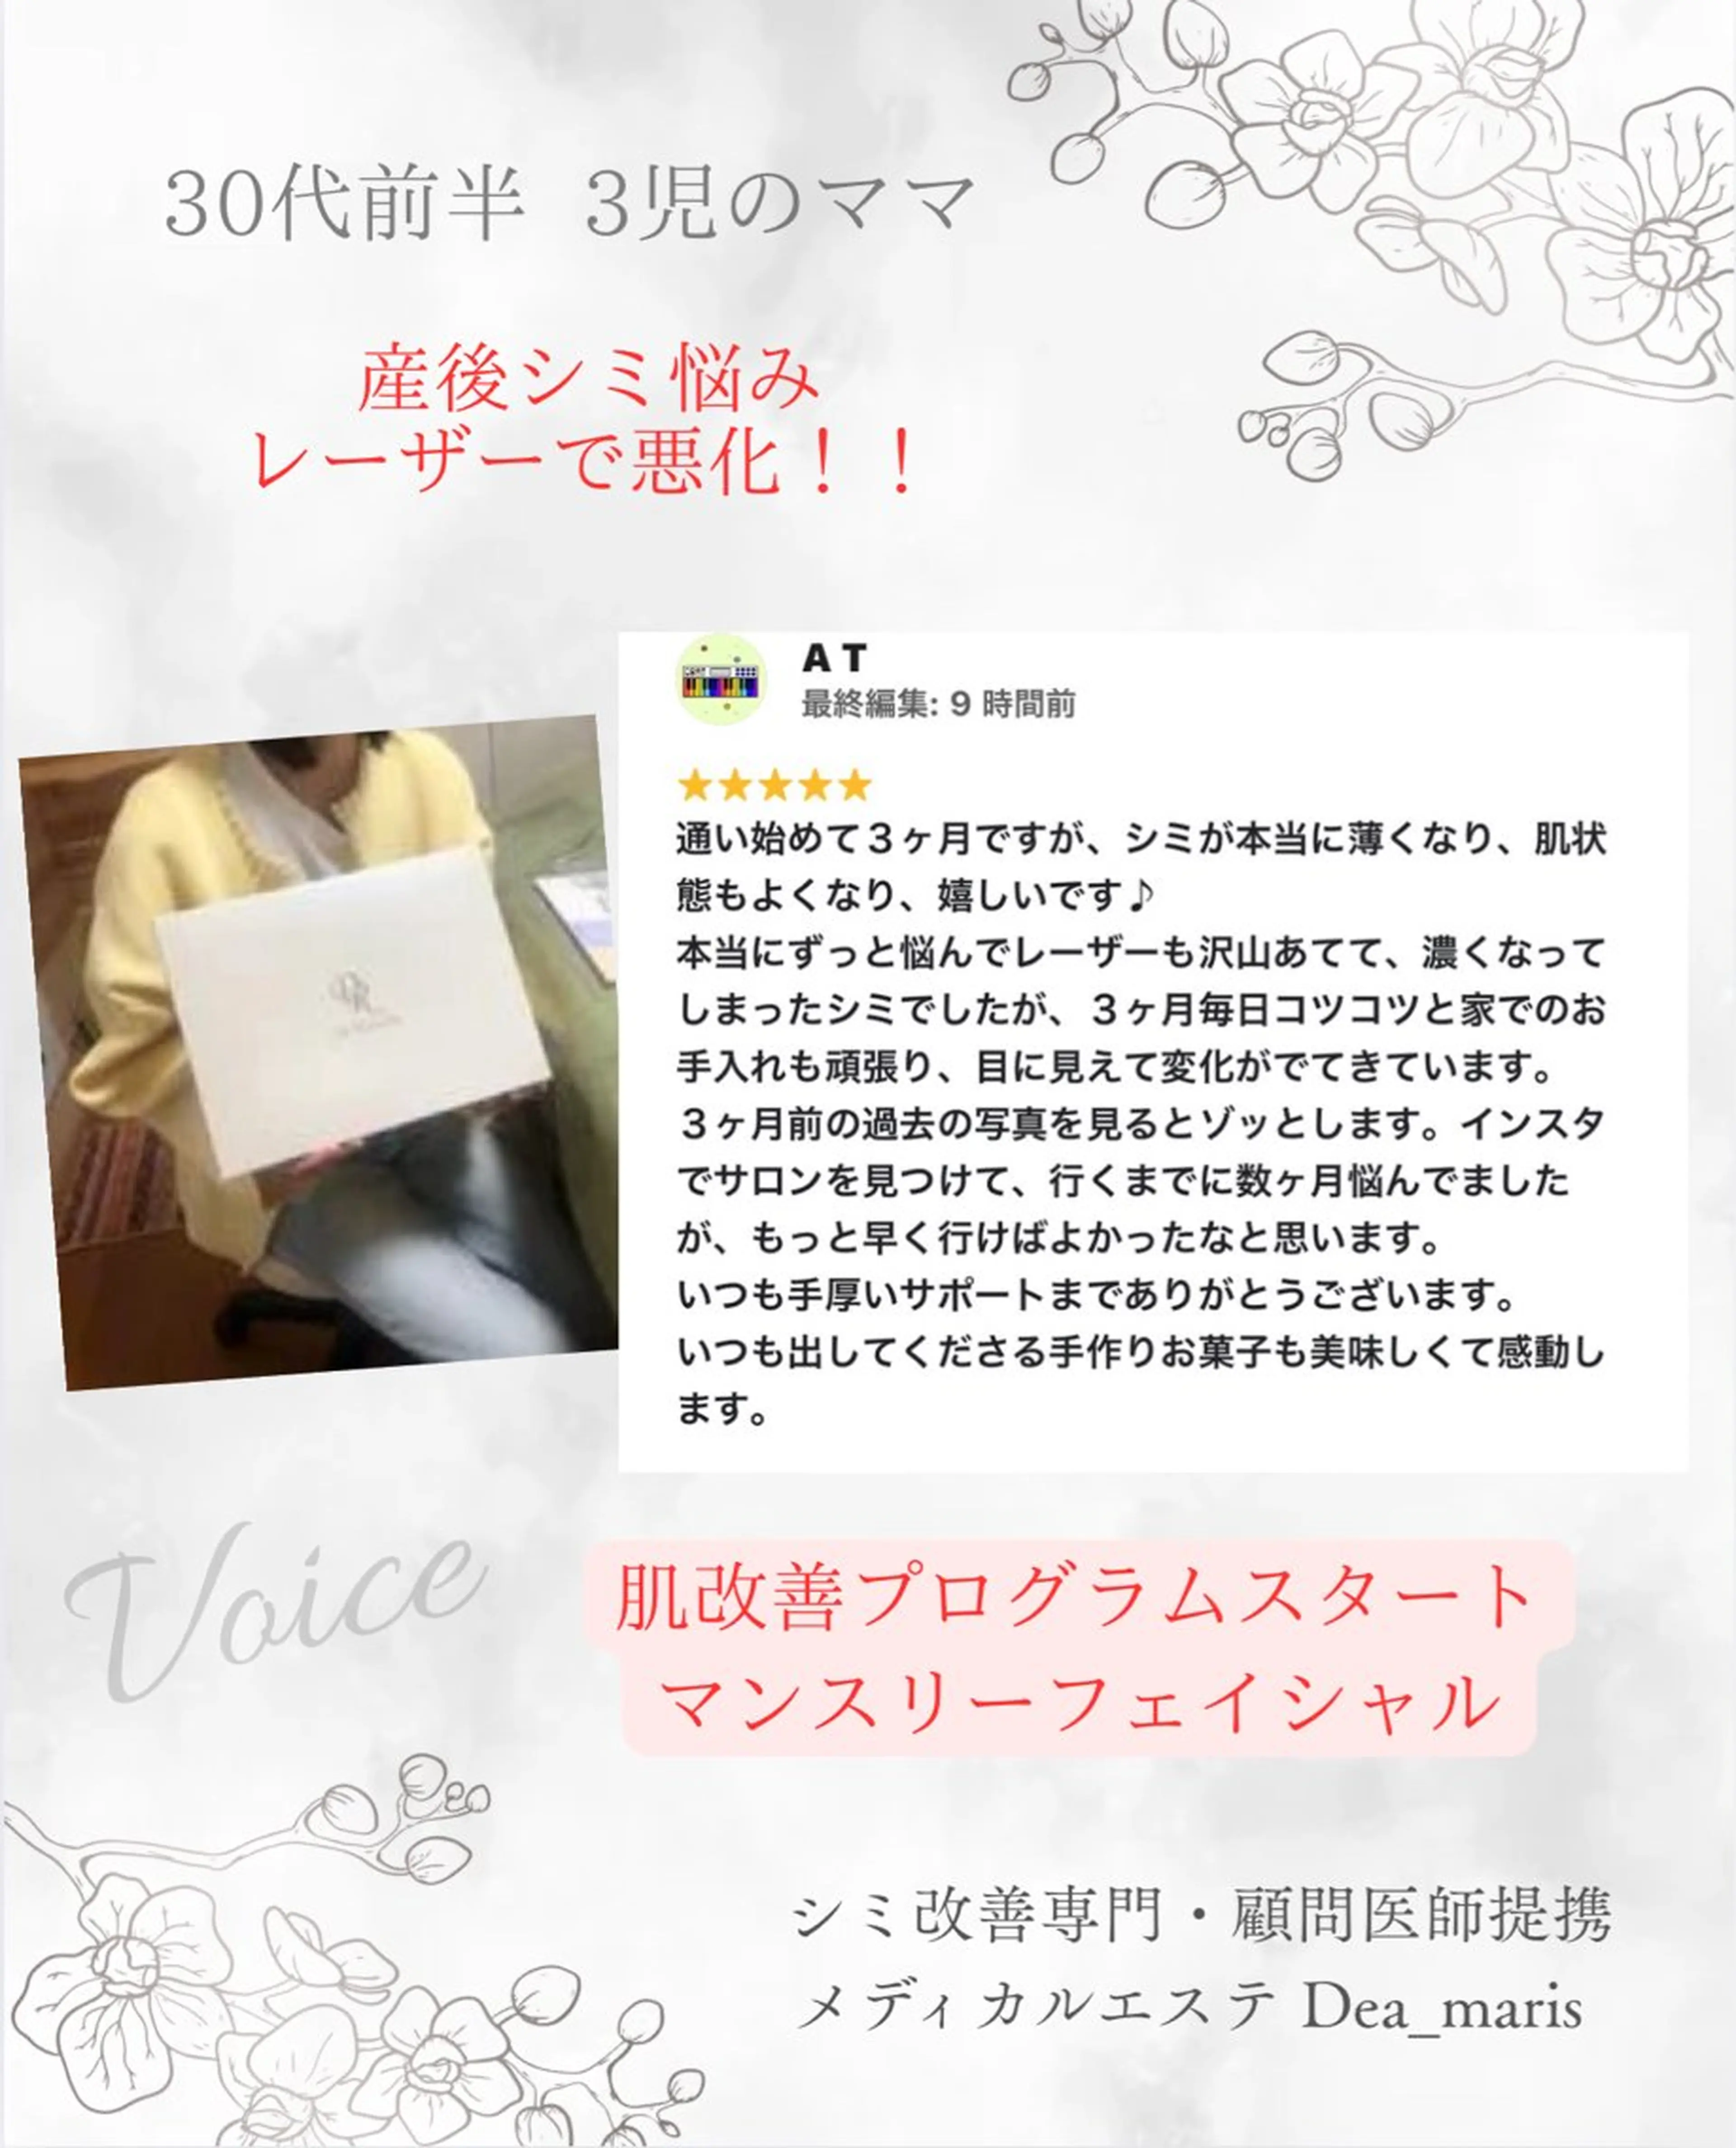 30代前半 3児のママ
産後シミ悩み
レーザーで悪化！！
A T
最終編集: 9 時間前
★★★★★
通い始めて３ヶ月ですが、シミが本当に薄くなり、肌状
態もよくなり、嬉しいです♪
本当にずっと悩んでレーザーも沢山あてて、濃くなって
しまったシミでしたが、３ヶ月毎日コツコツと家でのお
手入れも頑張り、目に見えて変化がでてきています。
３ヶ月前の過去の写真を見るとゾッとします。インスタ
でサロンを見つけて、行くまでに数ヶ月悩んでました
が、もっと早く行けばよかったなと思います。
いつも手厚いサポートまでありがとうございます。
いつも出してくださる手作りお菓子も美味しくて感動し
ます。
Voice
肌改善プログラムスタート
マンスリーフェイシャル
シミ改善専門・顧問医師提携
メディカルエステ Dea_maris